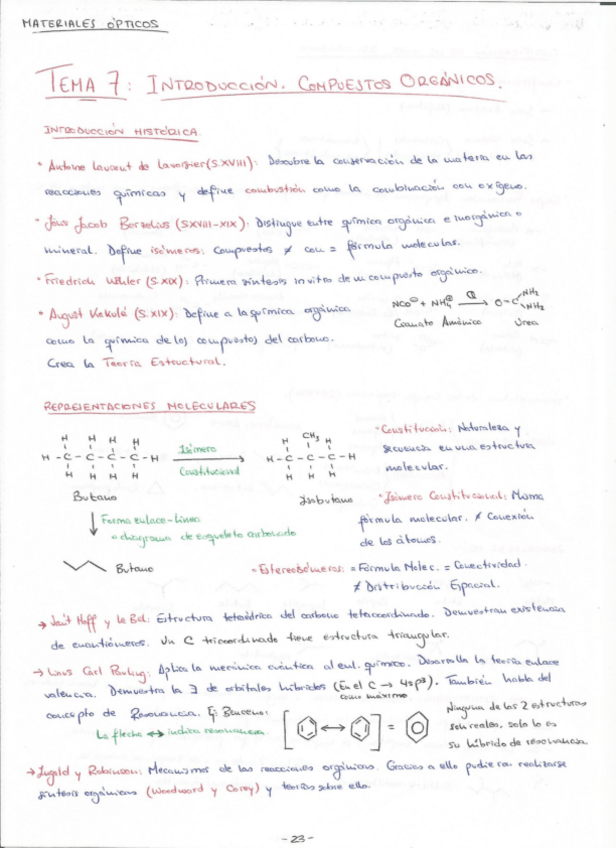 MATERIALES ÓPTICOS
TEMA 7: INTRODUCCIÓN. COMPUESTOS ORGÁNICOS.
INTRODUCCIÓN HISTÓRICA
• Antoine Laurent de Lavoisier (S.XVIII): Descubre la conservación de la materia en las
reacciones químicas y define combustión como la combinación con oxígeno.
• Jöns Jacob Berzelius (SXVIII-XIX): Distingue entre química orgánica e inorgánica o
mineral. Define isómeros: Compuestos ≠ con = fórmula molecular.
• Friedrich Wöhler (S.XIX): Primera síntesis in vitro de un compuesto orgánico.
• August Kekulé (S.XIX): Define a la química orgánica
como la química de los compuestos del carbono.
Crea la Teoría Estructural.
NCO⊖ + NH4⊕ → O-C NH2 NH2
Cianato Amónico Urea
REPRESENTACIONES MOLECULARES
H H H H
H - C - C - C - C - H
H H H H
Butano
Isómero
Constitucional
H CH3 H
H - C - C - C - H
H H H
Isobutano
• Constitución: Naturaleza y
secuencia en una estructura
molecular.
• Isómero Constitucional: Misma
fórmula molecular. ≠ Conexión
de los átomos.
Forma enlace-línea
= diagrama de esqueleto carbonado
Butano
• Estereoisómeros: = Fórmula Molec. = Conectividad.
≠ Distribución Espacial.
→ Van't Hoff y le Bel: Estructura tetaédrica del carbono tetracoordinado. Demuestran existencia
de enantiómeros. Un C tricoordinado tiene estructura triangular.
→ Linus Carl Pauling: Aplica la mecánica cuántica al enl. químico. Desarrolla la teoría enlace
valencia. Demuestra la ∃ de orbitales híbridos (En el C → 4sp³). También habla del
como máximo
concepto de Resonancia. Ej: Benceno:
La flecha ↔ indica resonancia
[ ↔ ] =
Ninguna de las 2 estructuras
son reales, solo lo es
su híbrido de resonancia.
→ Ingold y Robinson: Mecanismos de las reacciones orgánicas. Gracias a ello pudieron realizarse
síntesis orgánicas (Woodward y Corey) y teorías sobre ello.
- 23 -